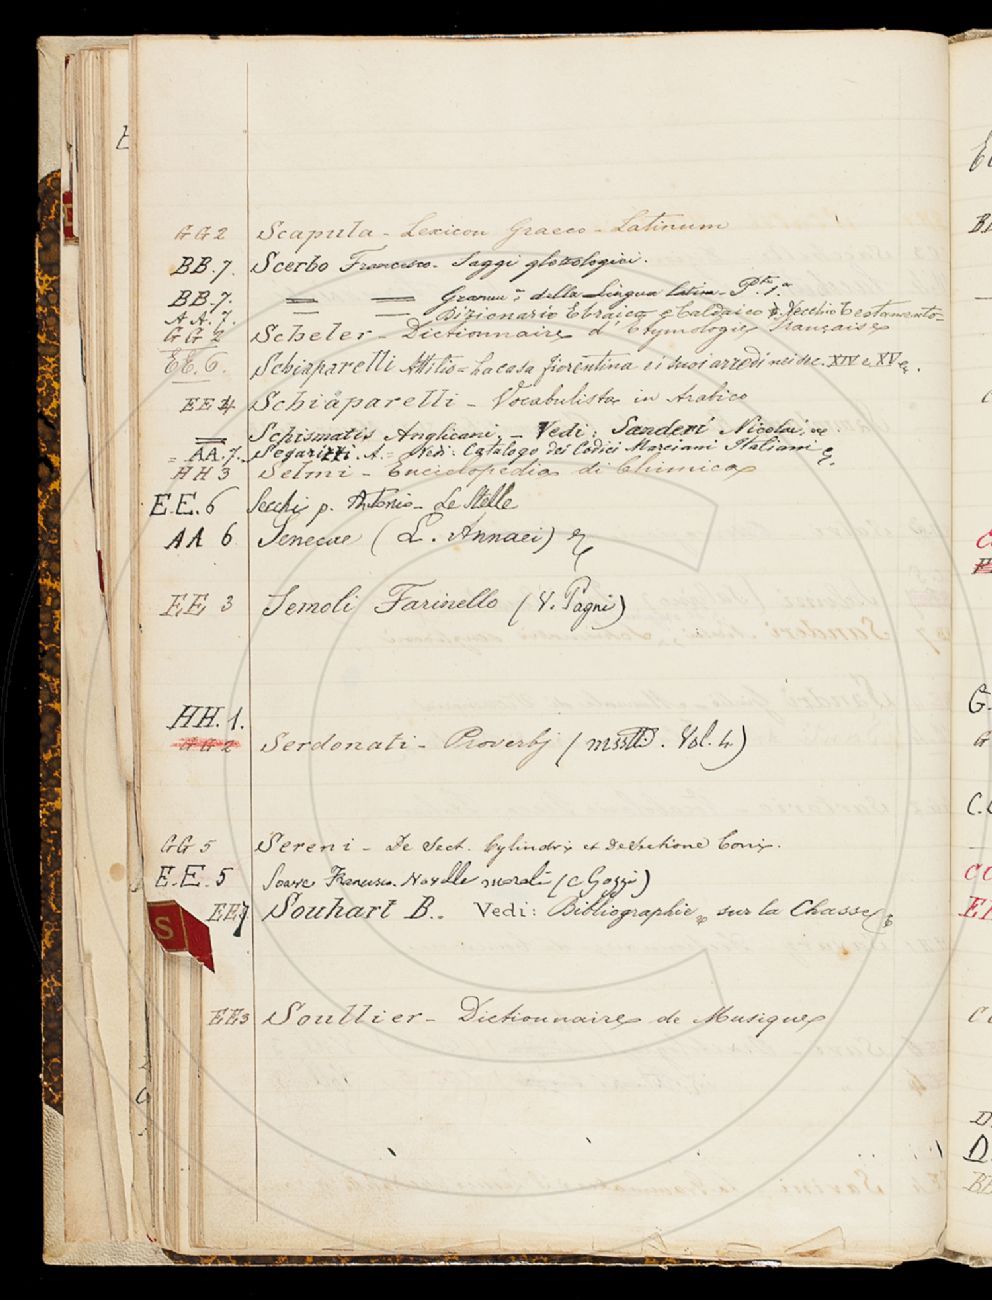 GG 2 Scapula - Lexicon Graeco-Latinum
BB.7. Scerbo Francesco. Saggi glottologici.
BB.7. = = Gramm.ª della Lingua latina - Pte 1.a
AA.7. — — Dizionario Ebraico e Caldaico d. Vecchio Testamento=
GG 2 Scheler - Dictionnaire d'Etymologie française
EE.6. Schiaparelli Attilio = La casa fiorentina e i suoi arredi nei sec. XIV e XV
EE 4 Schiaparelli - Vocabulista in Arabico
= Schismatis Anglicani, - Vedi: Sanderi Nicolai,
= AA.7. Segarizzi. A. = Vedi. Catalogo dei Codici Marciani Italiani
HH 3 Selmi - Enciclopedia di Chimica
E.E.6 Secchi p. Antonio - Le Stelle
AA 6 Senecae (L. Annaei)
EE 3 Semoli Farinello (V. Pagni)
HH. 1.
GG 2 Serdonati - Proverbj (mssti. Vol. 4)
GG 5 Sereni - De Sect. Cylindri et de Sectione Coni.
E.E. 5 Soave Francesco. Novelle morali (C Gozzi)
S
EE7 Souhart B.. Vedi: Bibliographie sur la Chasse
EE3 Soullier - Dictionnaire de Musique